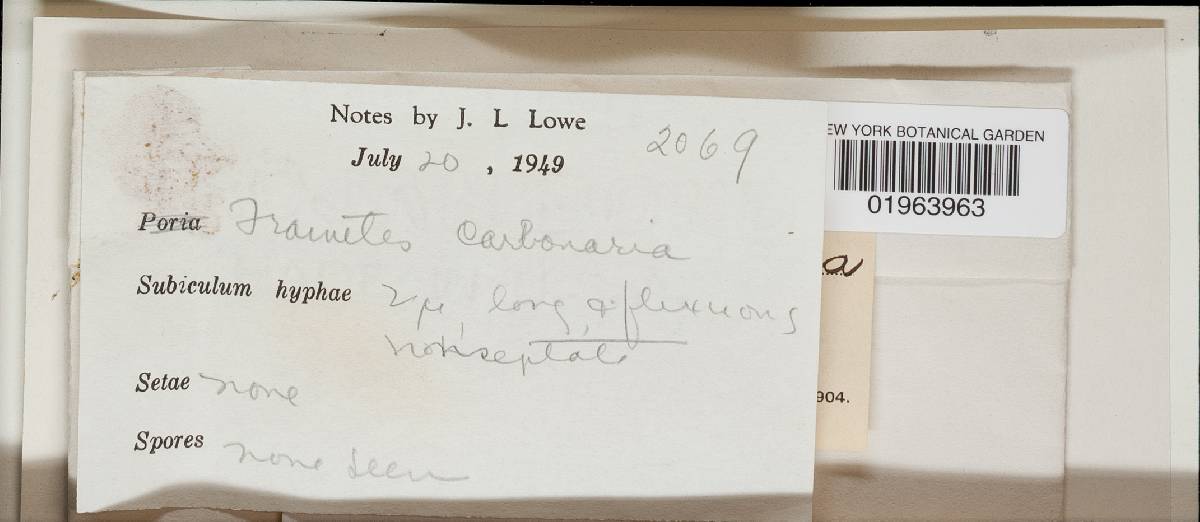 Notes by J. L Lowe
July 20, 1949
2069
Poria Trametes carbonaria
Subiculum hyphae 2μ, long, & flexuous
nonseptate
Setae none
Spores none seen
EW YORK BOTANICAL GARDEN
01963963
a
904.